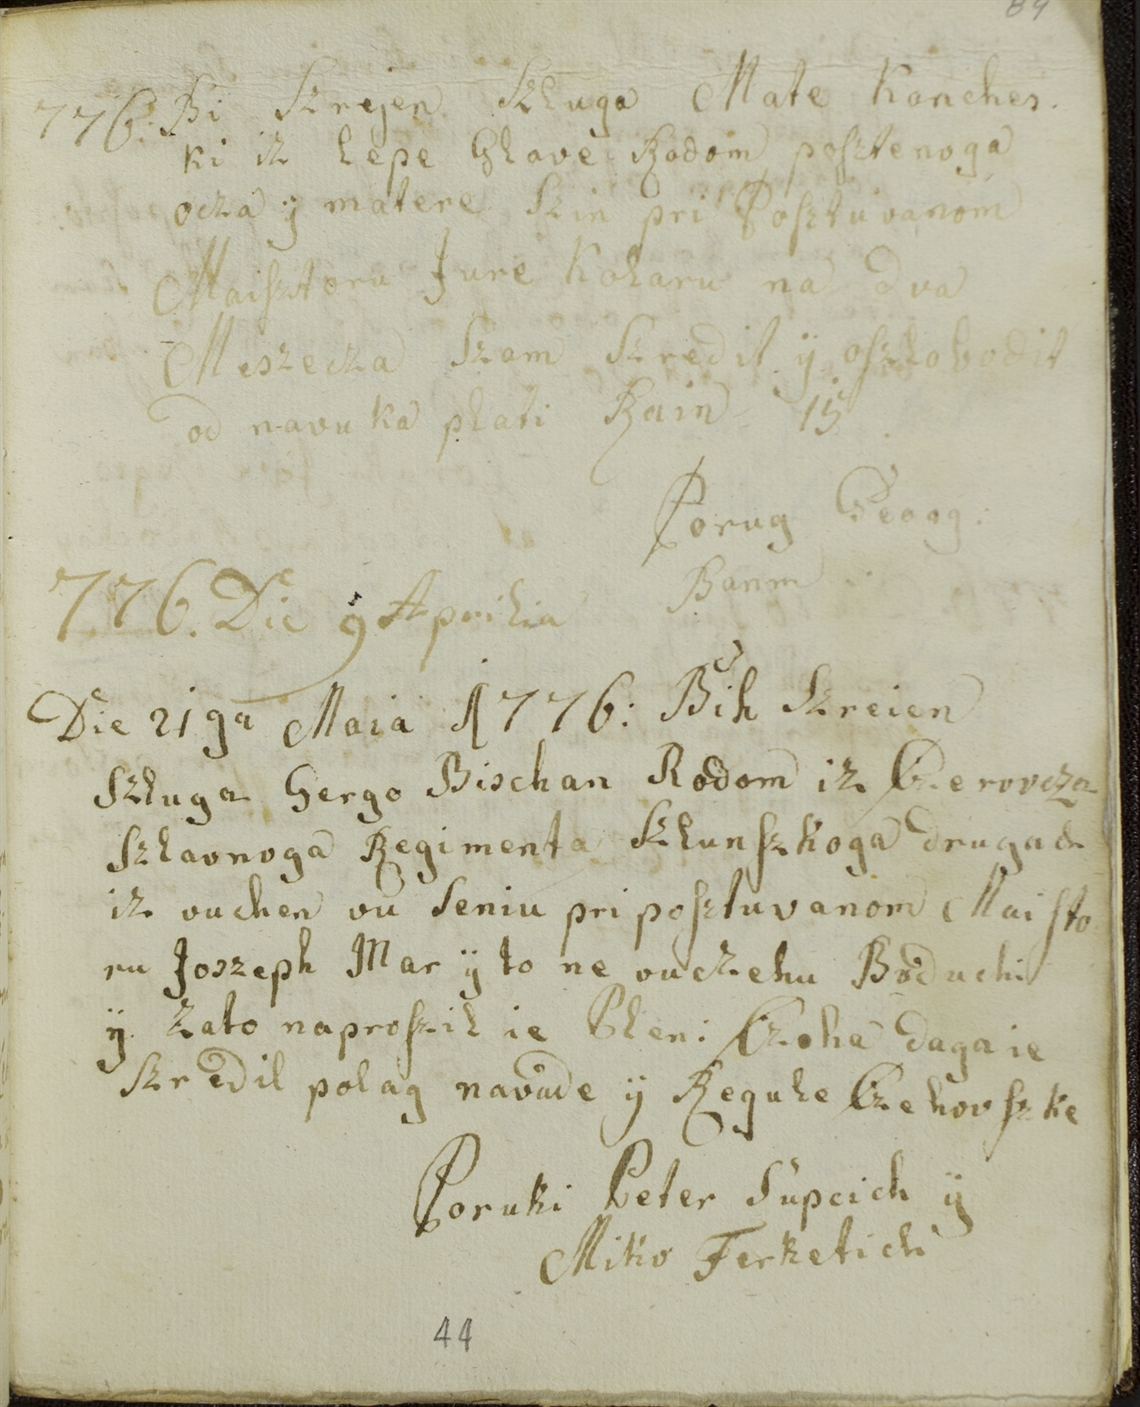 89
776: Bi Szrejen Szluga Mate Konches.
ki iz Lepe Glave Rodom posztenoga
ocza ÿ matere Szin pri Posztuvanom
Maisztoru Jure Kolaru na dva
Meszecza Szam Szredil ÿ oszlobodit
od navuka plati Rain 15
Porug Georg:
Banm
776. Die 9 Aprilia
Die 21ga Maia 1776: Bih Szreien
Szluga Gergo Bischan Rodom iz Czerovcza
Szlavnoga Regimenta Szlunszkoga drugach
iz vuchen vu Seniu pri posztuvanom Maisto
ru Joszeph Mar ÿ to ne vu czehu Buduchi
ÿ Zato naproszil ie Plen: Czohe daga ie
Szredil polag navade ÿ Regule Czehovszke
Poruki Peter Supcich ÿ
Miko Ferketich
44